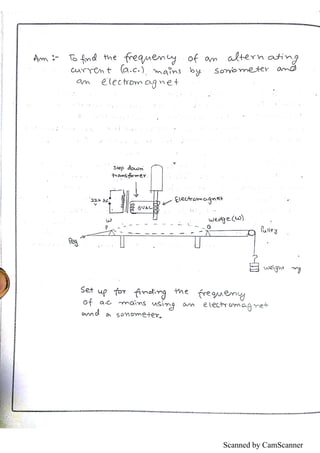 Aim :- To find the frequency of an alternating
current (a.c.) mains by sonometer and
an electromagnet
Step down
transformer
Electromagnet
6VAC
W
P
Wedge (W)
Q
Pulley
Peg
weight mg
Set up for finding the frequency
of a.c mains using an electromagnet
and a sonometer.
Scanned by CamScanner